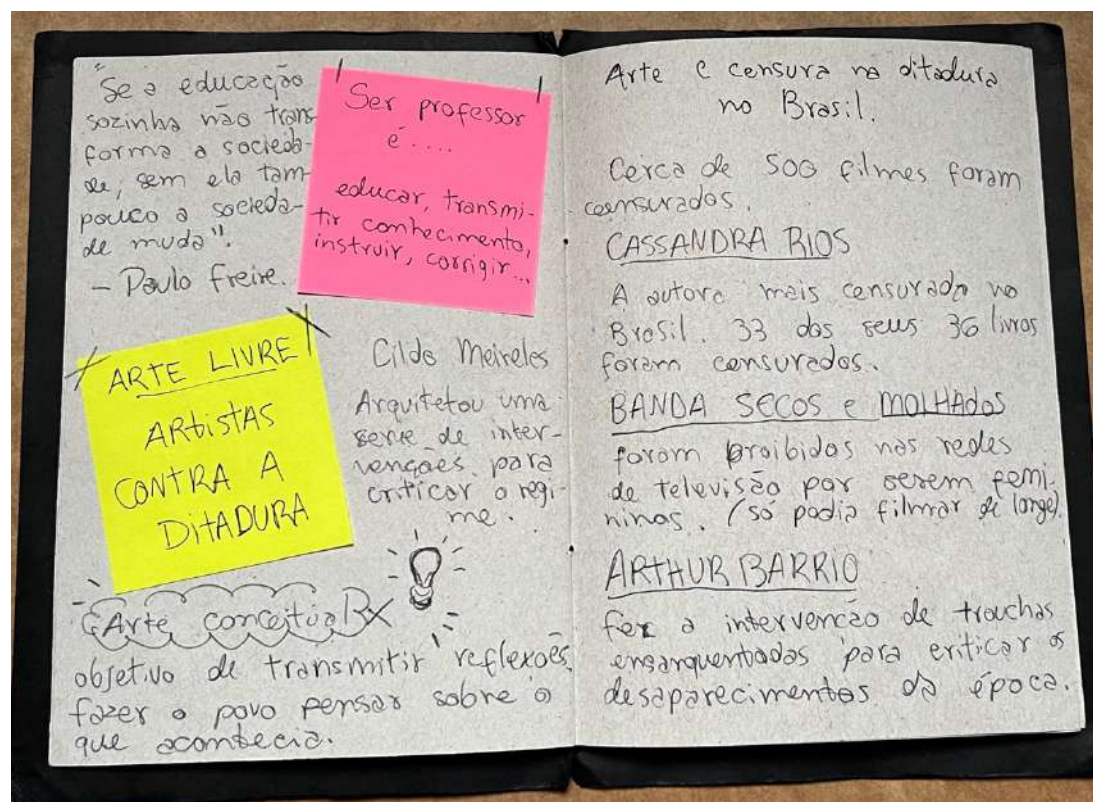 "Se a educação
sozinha não trans-
forma a socieda-
de, sem ela tam-
pouco a socieda-
de muda".
- Paulo Freire.
Ser professor
é....
educar, transmi-
tir conhecimento,
instruir, corrigir...
ARTE LIVRE
ARtiStAS
CONTRA A
DitADURA
Cildo Meireles
Arquitetou uma
serie de inter-
venções para
criticar o regi-
me.
Arte conceitual
objetivo de transmitir reflexões,
fazer o povo pensar sobre o
que acontecia.
Arte e censura na ditadura
no Brasil.
Cerca de 500 filmes foram
censurados.
CASSANDRA RIOS
A autora mais censurada no
Brasil. 33 dos seus 36 livros
foram censurados.
BANDA SECOS e MOLHADOS
foram proibidos nas redes
de televisão por serem femi-
ninos. (só podia filmar de longe).
ARTHUR BARRIO
fez a intervenção de trouchas
ensanquentadas para criticar os
desaparecimentos da época.